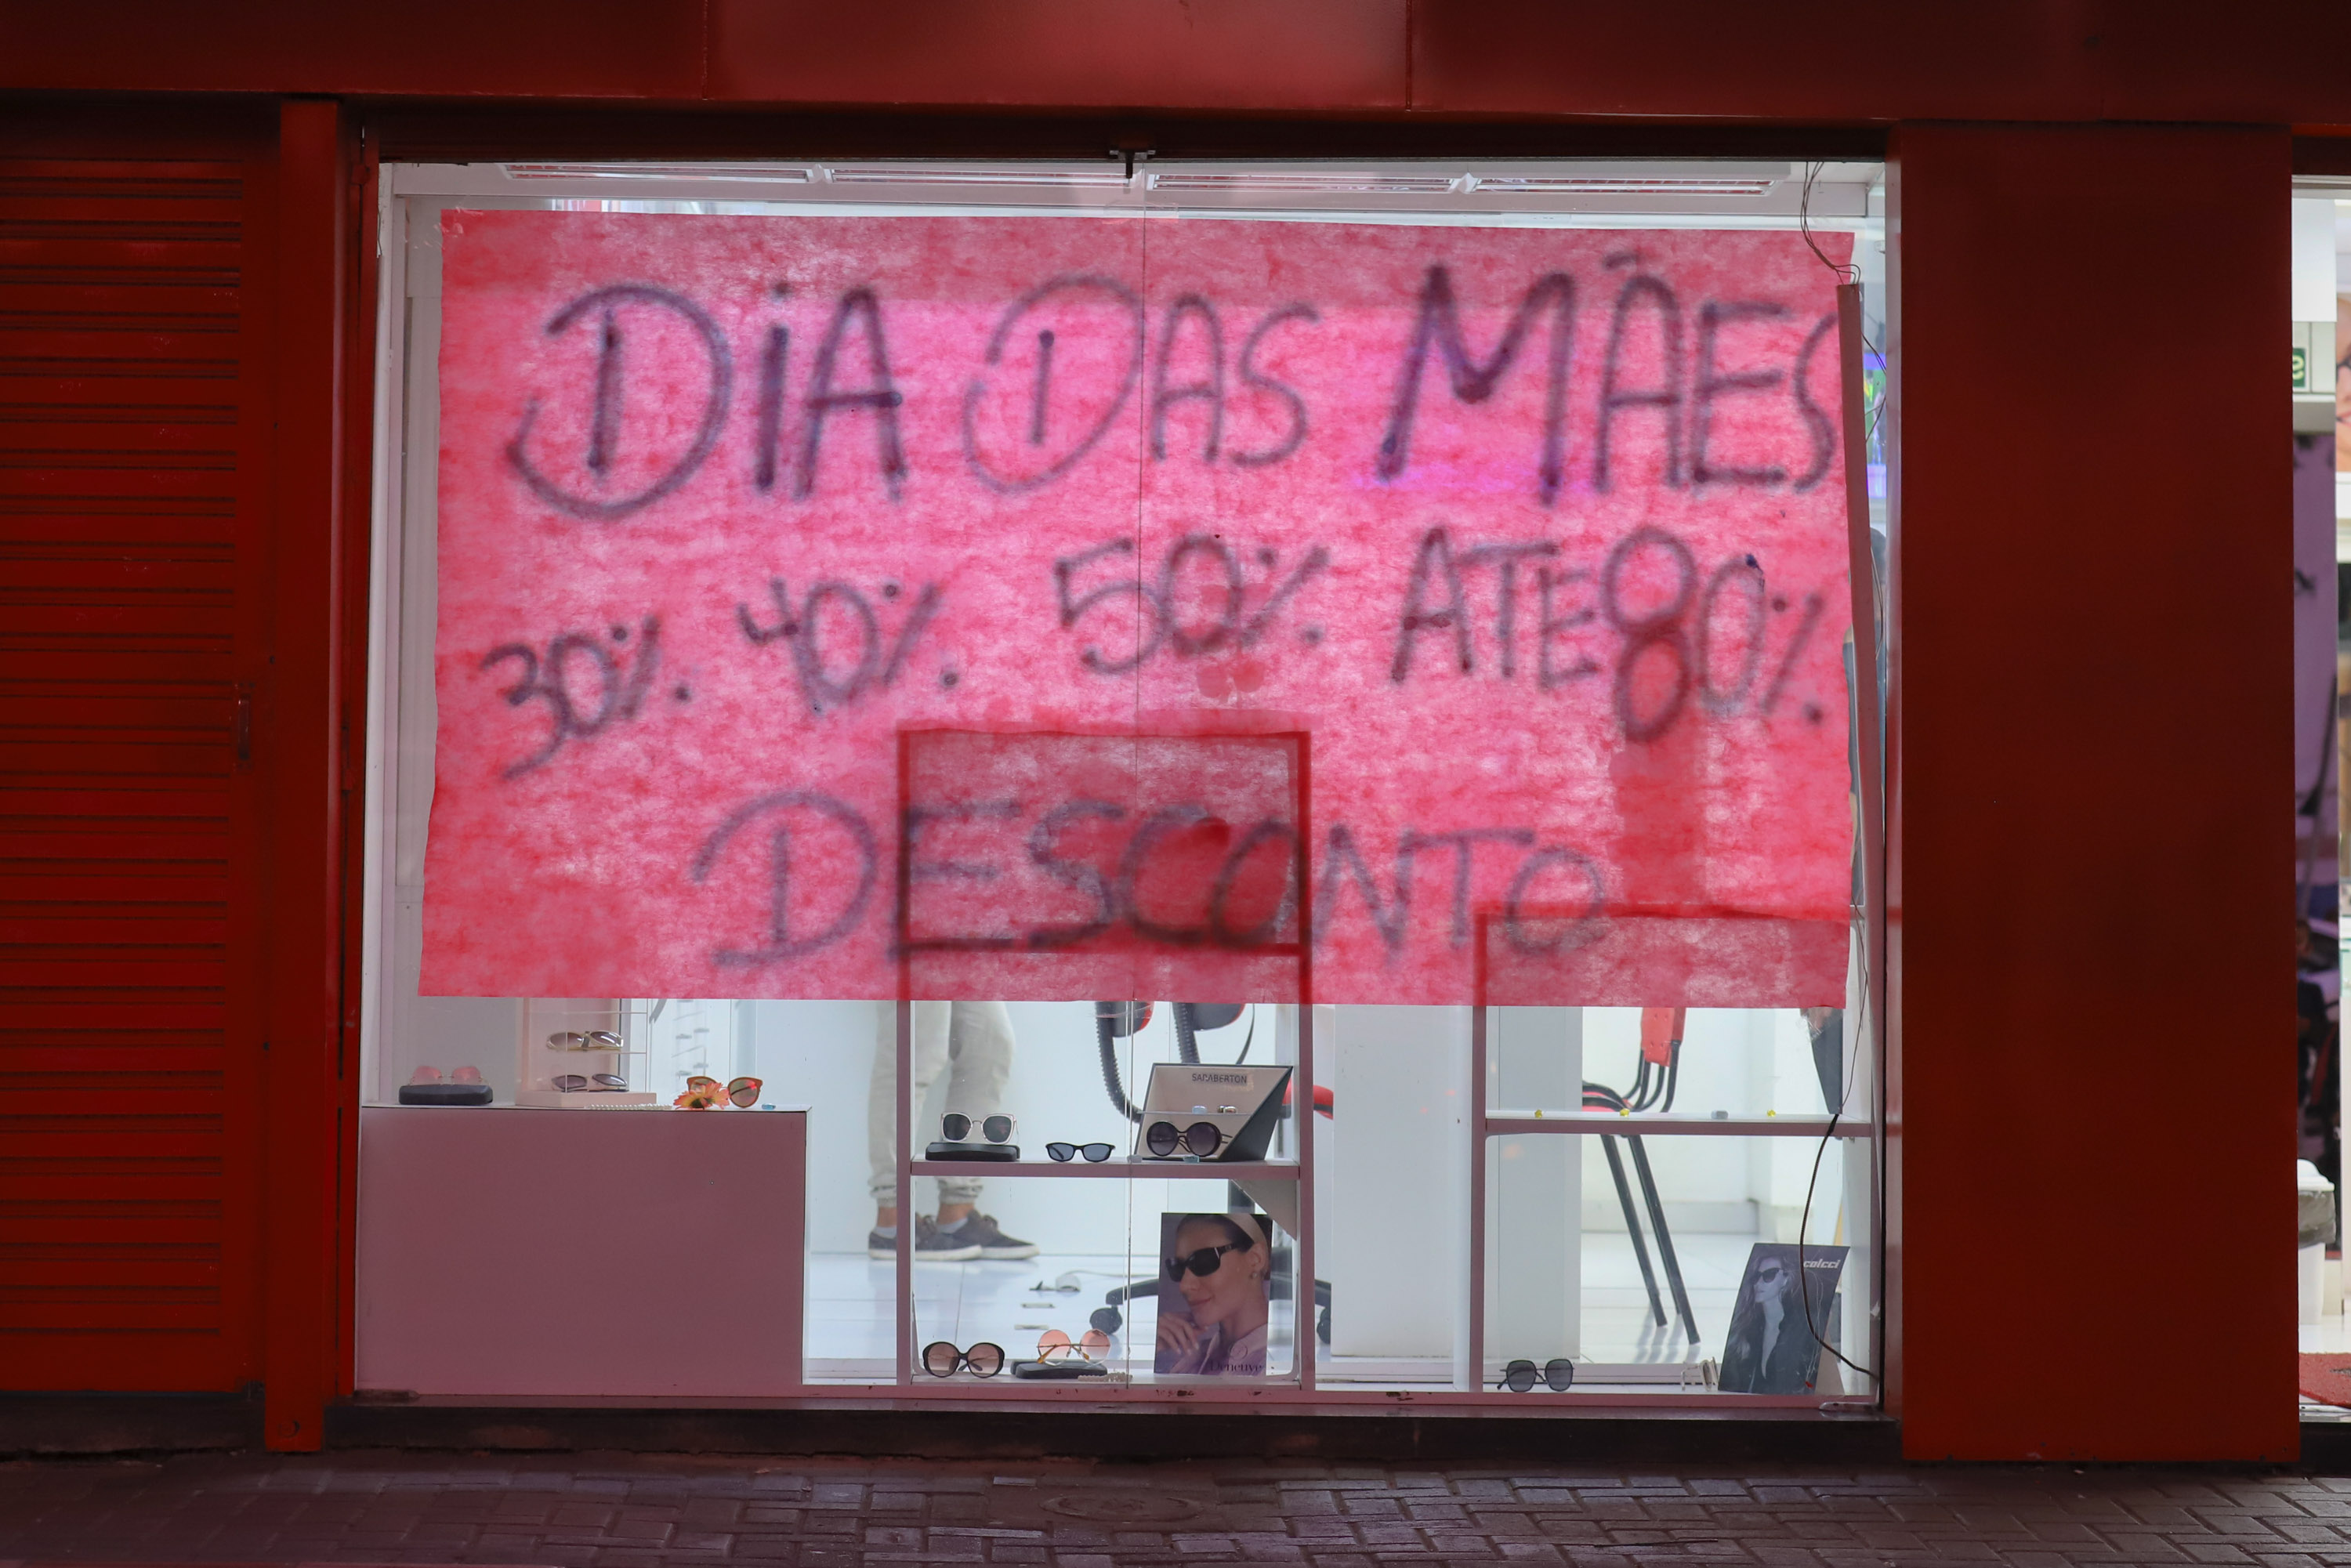 DiA DAS MÃES
30% 40% 50% ATE 80%
DESCONTO
SARABERTON
Deneuve
colcci